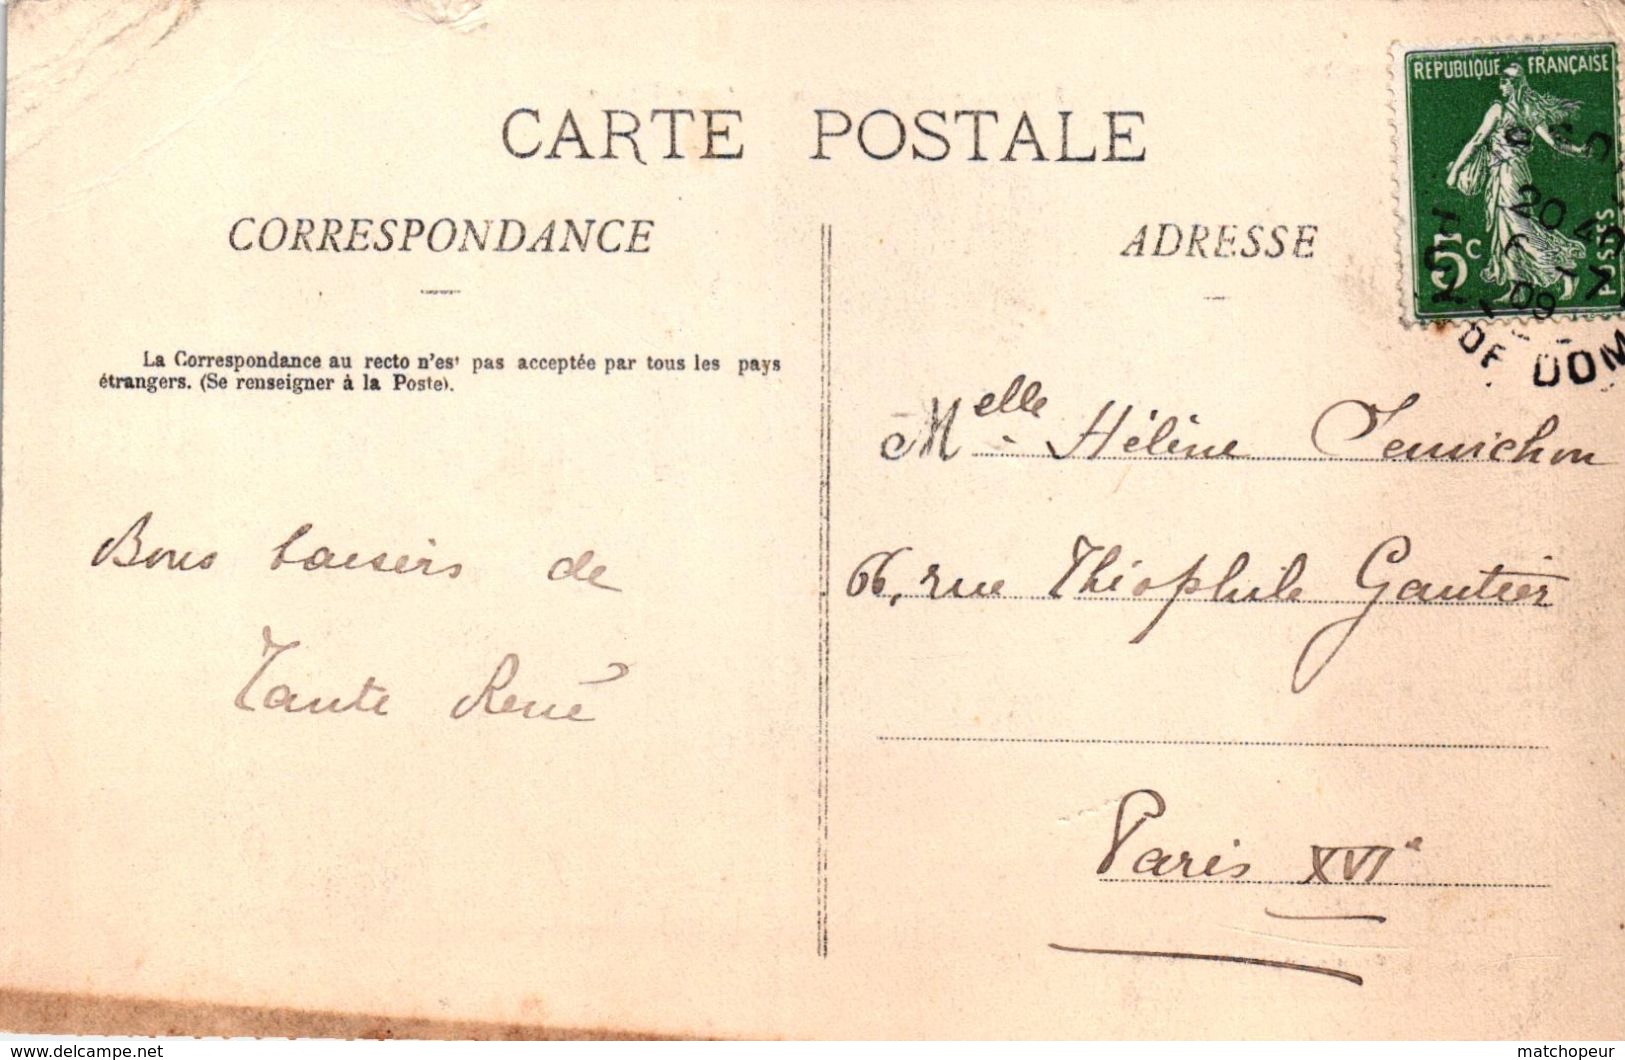 CARTE POSTALE
CORRESPONDANCE
ADRESSE
La Correspondance au recto n'est pas acceptée par tous les pays
étrangers. (Se renseigner à la Poste).
REPUBLIQUE FRANÇAISE
5c
POSTES
20 40
6 -7
09
DE DOM
Melle Hélène
66, rue Théophile Gautier
Paris XVIe
Bons baisers de
Tante René
www.delcampe.net
matchopeur